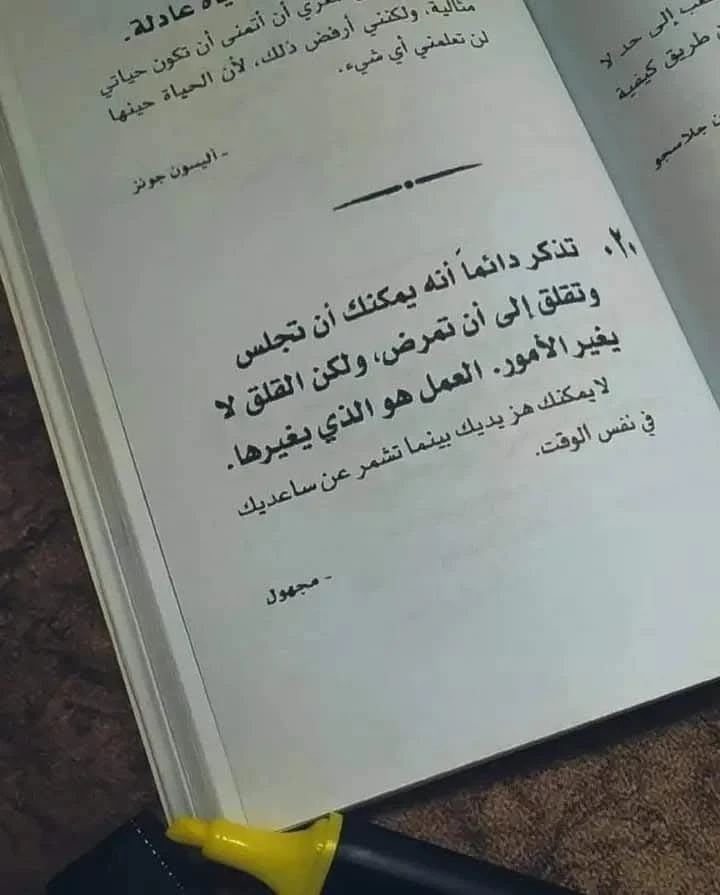 عادلة.
أن أتمنى أن تكون حياتي
مثالية، ولكنني أرفض ذلك، لأن الحياة حينها
لن تعلمني أي شيء.
- أليسون جونز
٢٠. تذكر دائماً أنه يمكنك أن تجلس
وتقلق إلى أن تمرض، ولكن القلق لا
يغير الأمور. العمل هو الذي يغيرها.
لا يمكنك هز يديك بينما تشمر عن ساعديك
في نفس الوقت.
- مجهول
إلى حد لا
طريق كيفية
جلاسجو